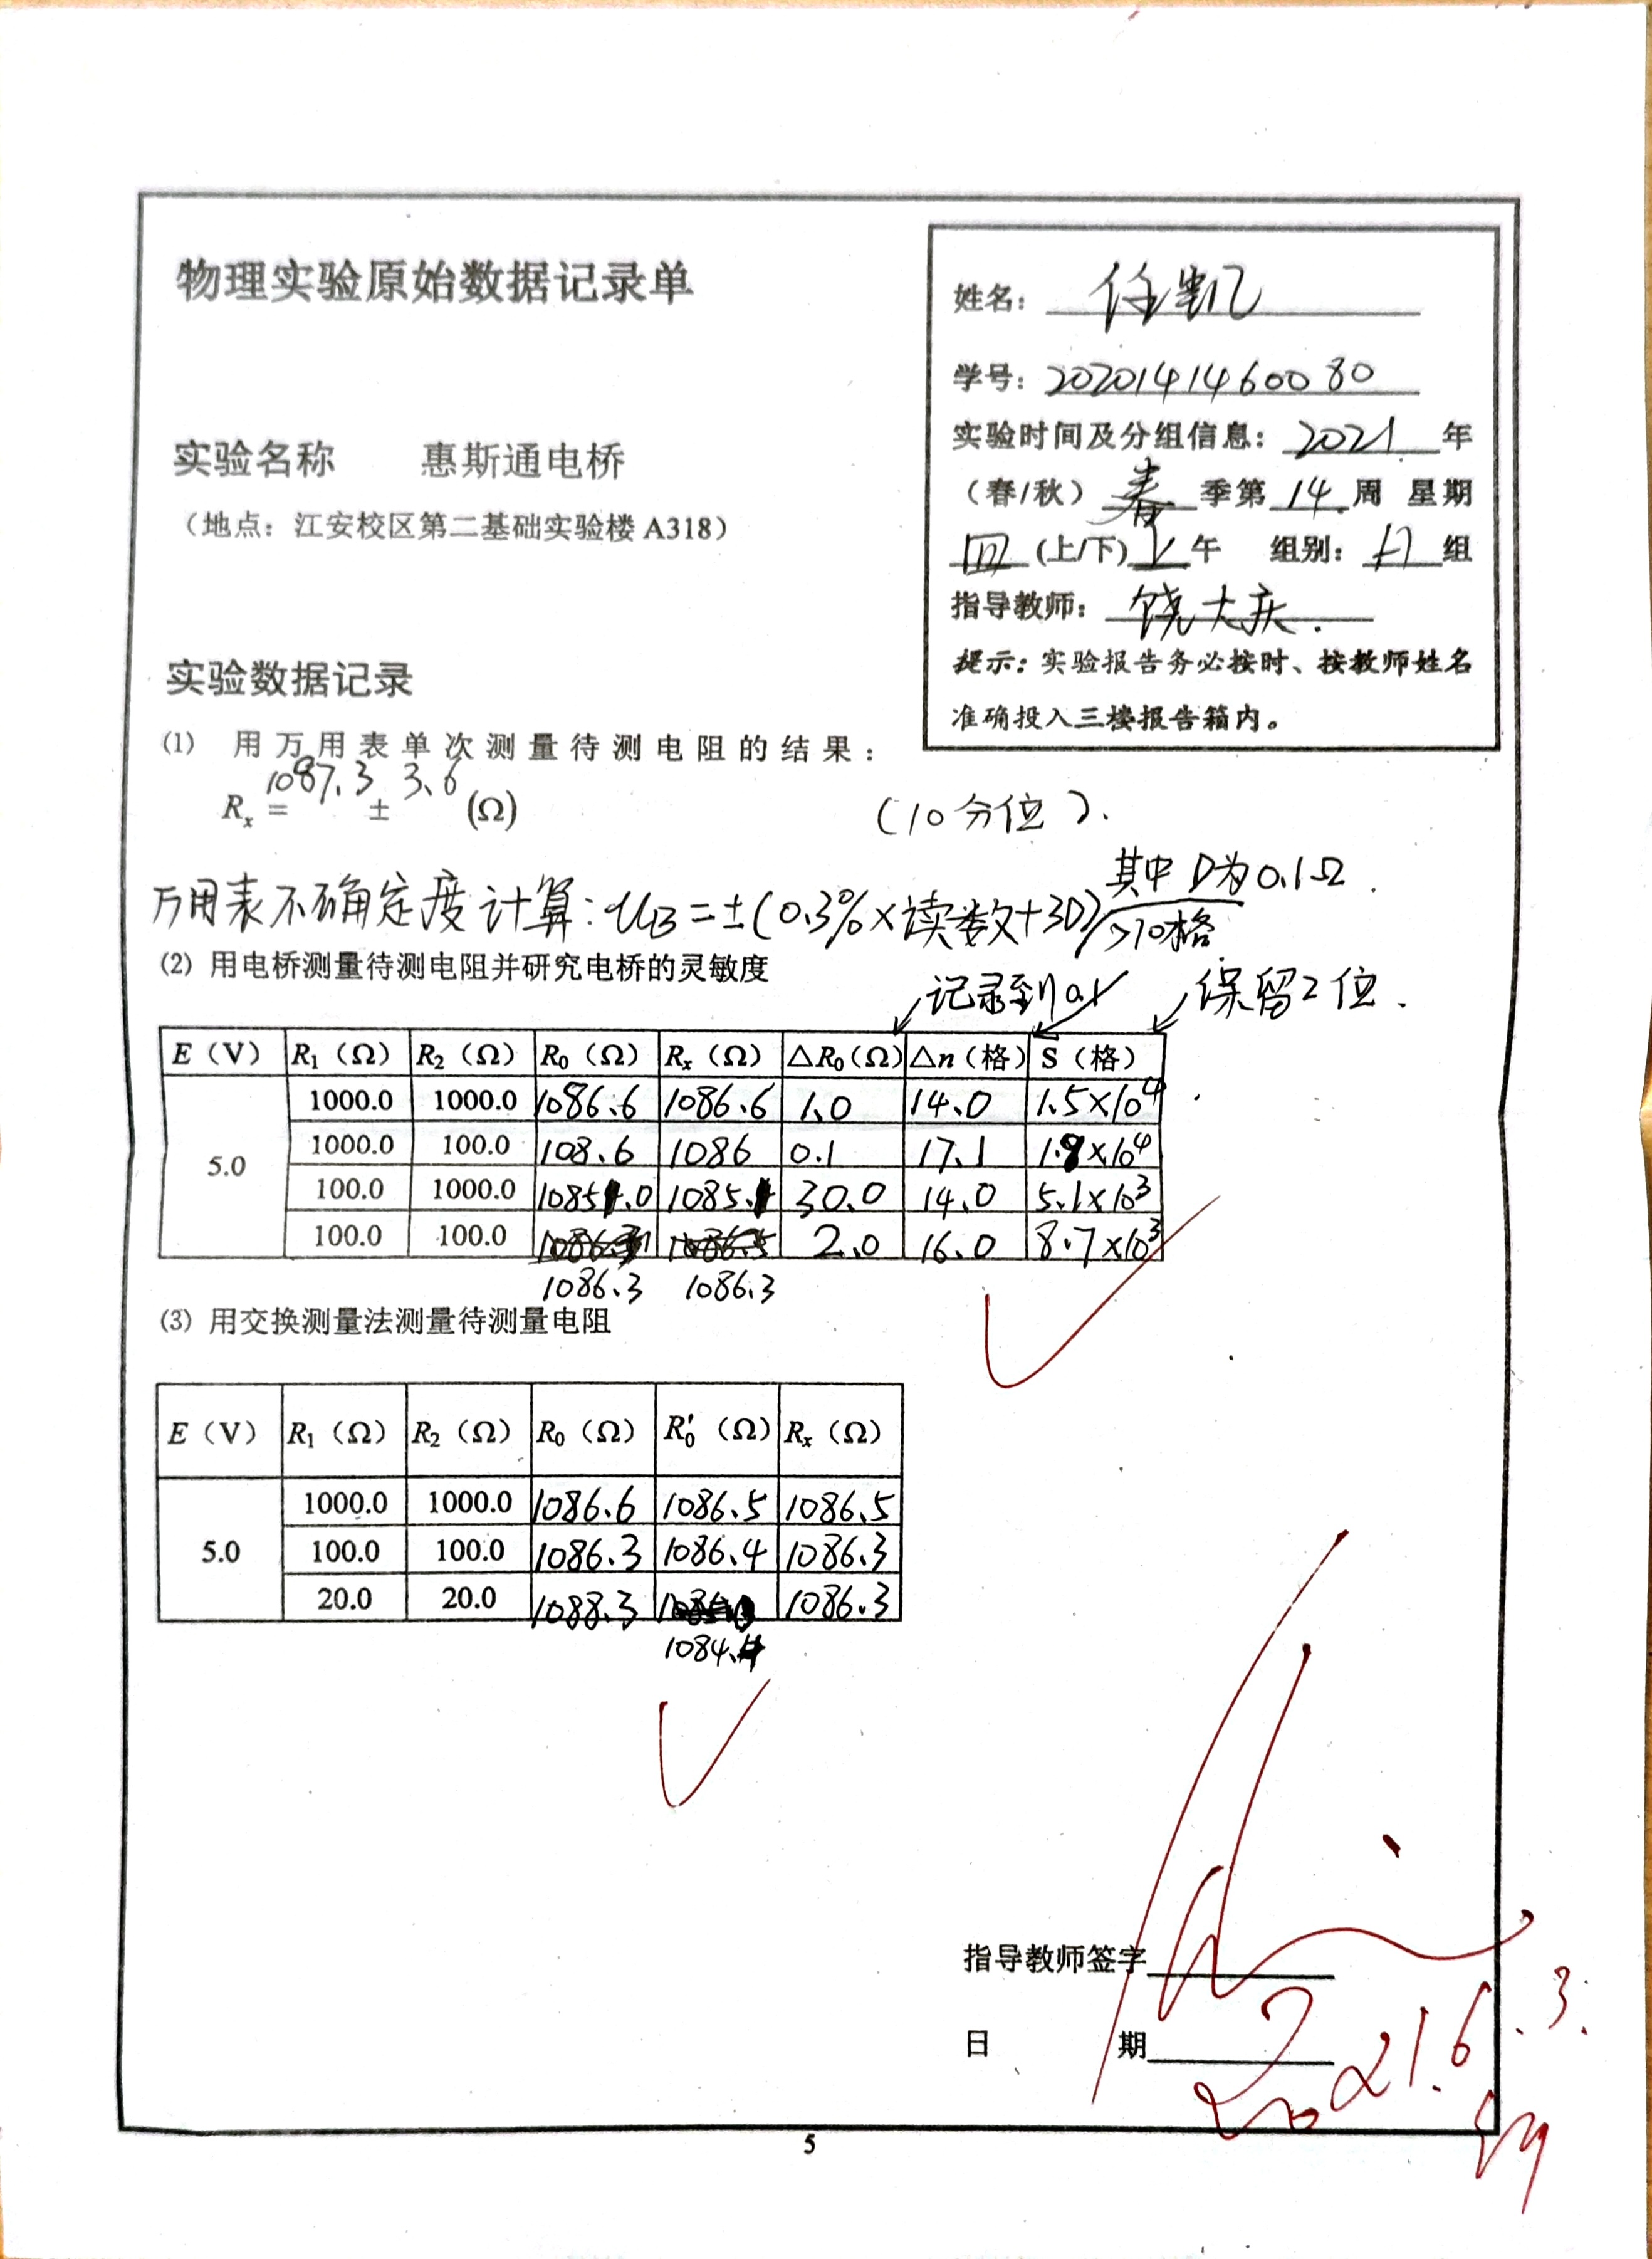 物理实验原始数据记录单
姓名： 任凯
学号：2020141460080
实验时间及分组信息：2021年
（春/秋）春季第14周 星期
四(上/下)上午 组别：A组
指导教师：饶大庆.
提示：实验报告务必按时、按教师姓名
准确投入三楼报告箱内。
实验名称 惠斯通电桥
（地点：江安校区第二基础实验楼 A318）
实验数据记录
⑴ 用万用表单次测量待测电阻的结果：
Rx = 1087.3 ± 3.6 (Ω)
（10分位）.
万用表不确定度计算：uB=±(0.3%×读数+3D) 其中D为0.1Ω.
>10格
⑵ 用电桥测量待测电阻并研究电桥的灵敏度
记录到0.1
保留2位.
E（V） R1（Ω） R2（Ω） R0（Ω） Rx（Ω） △R0(Ω) △n（格） S（格）
5.0
1000.0 1000.0 1086.6 1086.6 1.0 14.0 1.5×10⁴
1000.0 100.0 108.6 1086 0.1 17.1 1.8×10⁴
100.0 1000.0 1085.0 1085. 30.0 14.0 5.1×10³
100.0 100.0 2.0 16.0 8.7×10³
1086.3 1086.3
⑶ 用交换测量法测量待测量电阻
E（V） R1（Ω） R2（Ω） R0（Ω） R0′（Ω） Rx（Ω）
5.0
1000.0 1000.0 1086.6 1086.5 1086.5
100.0 100.0 1086.3 1086.4 1086.3
20.0 20.0 1088.3 1086.3
1084.4
指导教师签字
日 期 2021.6.3.
5